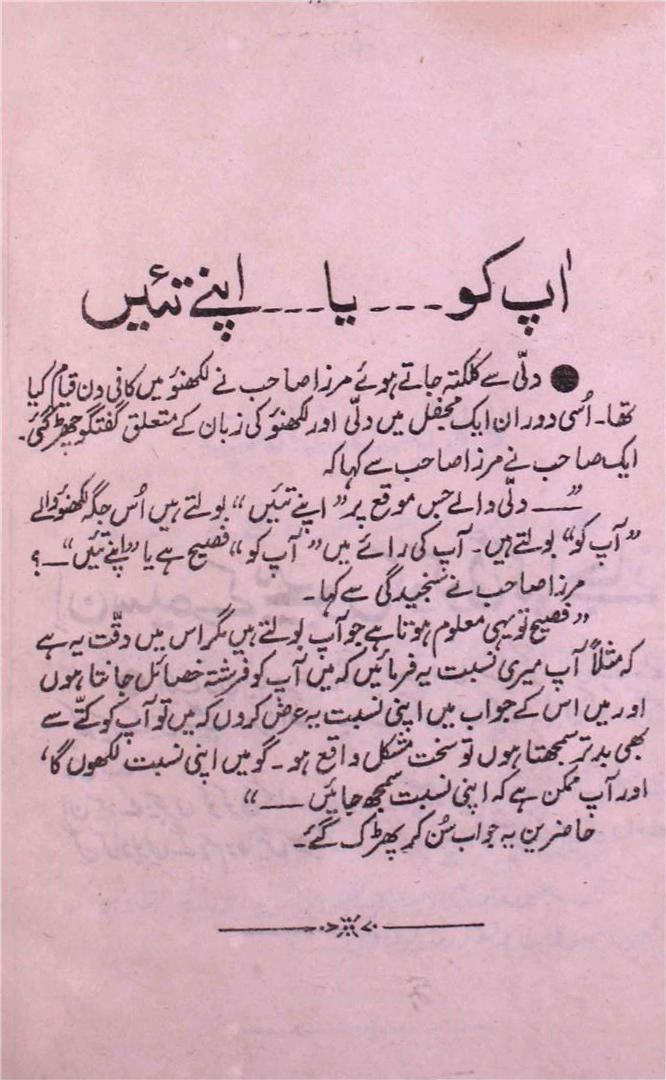 اٰپ کو ۔۔۔ یا ۔۔۔ اپنے تئیں
● دلّی سے کلکتہ جاتے ہوئے مرزا صاحب نے لکھنؤ میں کافی دن قیام کیا
تھا۔ اُسی دوران ایک محفل میں دلّی اور لکھنؤ کی زبان کے متعلق گفتگو چھڑ گئی۔
ایک صاحب نے مرزا صاحب سے کہا کہ
”— دلّی والے جس موقع پر ”اپنے تئیں“ بولتے ہیں اُس جگہ لکھنؤ والے
”آپ کو“ بولتے ہیں۔ آپ کی رائے میں ”آپ کو“ فصیح ہے یا ”اپنے تئیں“ —؟
مرزا صاحب نے سنجیدگی سے کہا۔
”فصیح تو یہی معلوم ہوتا ہے جو آپ بولتے ہیں مگر اس میں دقّت یہ ہے
کہ مثلاً آپ میری نسبت یہ فرمائیں کہ میں آپ کو فرشتہ خصائل جانتا ہوں
اور میں اس کے جواب میں اپنی نسبت یہ عرض کروں کہ میں تو آپ کو کتّے سے
بھی بدتر سمجھتا ہوں تو سخت مشکل واقع ہو۔ گو میں اپنی نسبت لکھوں گا،
اور آپ ممکن ہے کہ اپنی نسبت سمجھ جائیں —“
حاضرین یہ جواب سُن کر پھڑک گئے۔